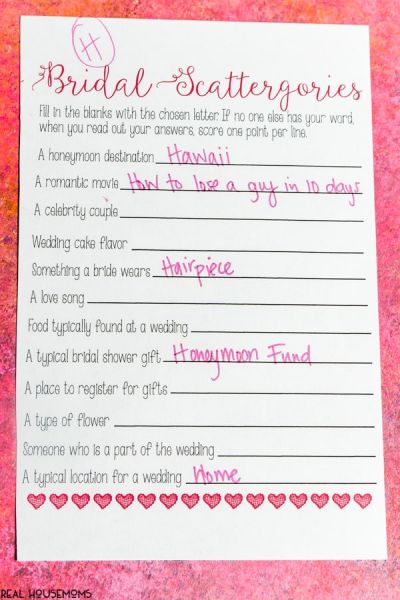 H
Bridal Scattergories
Fill in the blanks with the chosen letter. If no one else has your word,
when you read out your answers, score one point per line.
A honeymoon destination Hawaii
A romantic movie How to lose a guy in 10 days
A celebrity couple
Wedding cake flavor
Something a bride wears Hairpiece
A love song
Food typically found at a wedding
A typical bridal shower gift Honeymoon Fund
A place to register for gifts
A type of flower
Someone who is a part of the wedding
A typical location for a wedding Home
REAL HOUSEMOMS